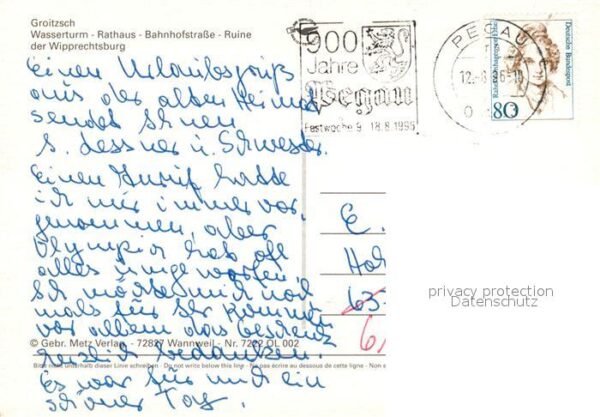 Groitzsch
Wasserturm - Rathaus - Bahnhofstraße - Ruine
der Wipprechtsburg
Einen Urlaubsgruß
aus der alten Heimat
sendet Ihnen
S. Dessner u. Schwester.
Einen Anruf hatte
ich mir immer vor
genommen, aber
Olympia hat oft
alles umgeworfen.
Ich möchte mich noch
mals für Ihr Kommen
vor allem das
herzlich bedanken.
Es war für mich ein
schöner Tag.
900
Jahre
Pegau
Festwoche 9. - 18.8.1996
PEGAU
12.-8.96-10
Deutsche Bundespost
80
E.
63
privacy protection
Datenschutz
© Gebr. Metz Verlag - 72827 Wannweil - Nr. 7222 OL 002
Bitte nicht unterhalb dieser Linie schreiben - Do not write below this line - Ne pas écrire au dessous de cette ligne - Non